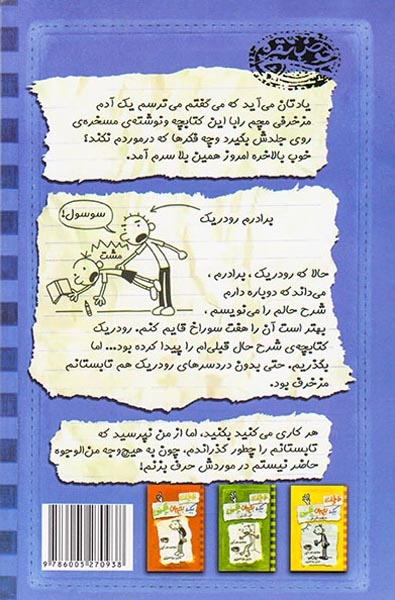 یادتان می‌آید که می‌گفتم می‌ترسم یک آدم
مزخرفی مچم را با این کتابچه و نوشته‌ی مسخره‌ی
روی جلدش بگیرد و چه فکرها که در موردم نکند؟
خوب بالاخره امروز همین بلا سرم آمد.
سوسول!
برادرم رودریک
مشت
حالا که رودریک ، برادرم ،
می‌داند که دوباره دارم
شرح حالم را می‌نویسم ،
بهتر است آن را هفت سوراخ قایم کنم. رودریک
کتابچه‌ی شرح حال قبلی‌ام را پیدا کرده بود... اما
بگذریم. حتی بدون دردسرهای رودریک هم تابستانم
مزخرف بود.
هر کاری می‌کنید بکنید، اما از من نپرسید که
تابستانم را چطور گذراندم، چون به هیچ‌وجه من‌الوجوه
حاضر نیستم در موردش حرف بزنم!
9 786005 270938